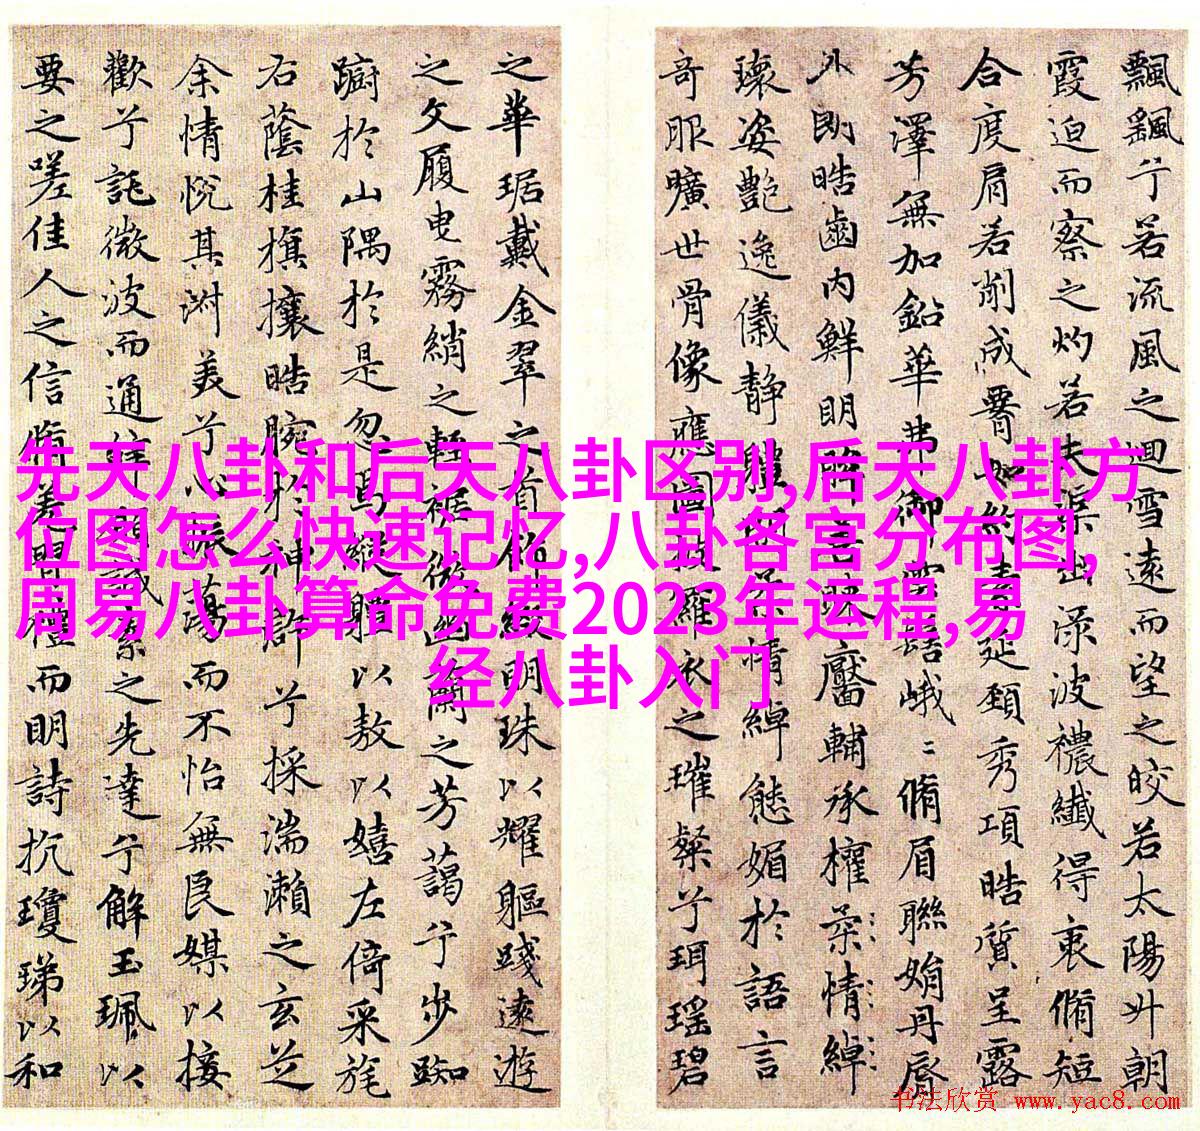 飄飖兮若流風之迴雪遠而望之皎若太陽升朝
霞迫而察之灼若夫渠出淥波襛纖得衷脩短
合度肩若削成腰如約素延頸秀項皓質呈露
芳澤無加鉛華弗御雲髻峨〻脩眉聯娟丹脣
外朗皓齒內鮮明眸善睞靨輔承權柔情綽
瓌姿艷逸儀靜體閑柔情綽態媚於語言
奇服曠世骨像應圖披羅衣之璀粲兮珥瑤碧
之華琚戴金翠之首飾綴明珠以耀軀踐遠遊
之文履曳霧綃之輕裾微幽蘭之芳藹兮步踟
躕於山隅於是忽焉縱體以敖以嬉左倚采旄
右蔭桂旗攘皓腕於神滸兮採湍瀨之玄芝
余情悅其淑美兮心振蕩而不怡無良媒以接
歡兮託微波而通辭願誠素之先達兮解玉珮以
要之嗟佳人之信脩羌習禮而明詩抗瓊珶以和
先天八卦和后天八卦区别,后天八卦方
位图怎么快速记忆,八卦各宫分布图,
周易八卦算命免费2023年运程,易
经八卦入门
书法欣赏 www.yac8.com